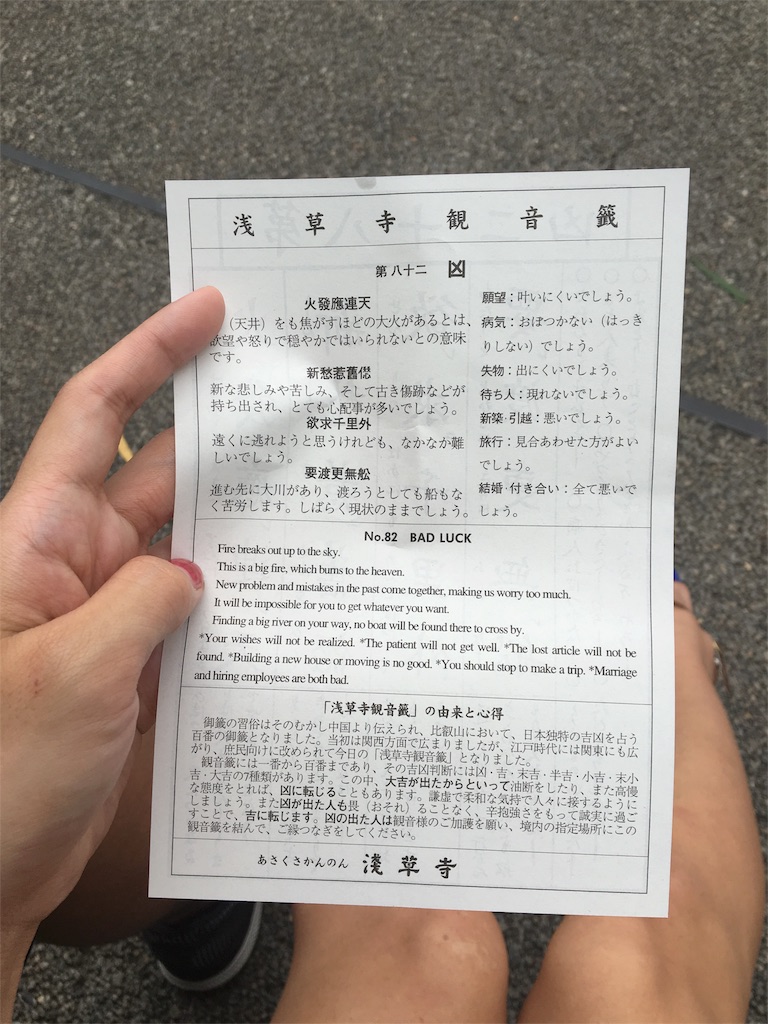 浅草寺観音籤
第八十二 凶
火發應連天
（天井）をも焦がすほどの大火があるとは、
欲望や怒りで穏やかではいられないとの意味
です。
新愁惹舊愆
新な悲しみや苦しみ、そして古き傷跡などが
持ち出され、とても心配事が多いでしょう。
欲求千里外
遠くに逃れようと思うけれども、なかなか難
しいでしょう。
要渡更無舩
進む先に大川があり、渡ろうとしても船もな
く苦労します。しばらく現状のままでしょう。
願望：叶いにくいでしょう。
病気：おぼつかない（はっき
りしない）でしょう。
失物：出にくいでしょう。
待ち人：現れないでしょう。
新築・引越：悪いでしょう。
旅行：見合あわせた方がよい
でしょう。
結婚・付き合い：全て悪いで
しょう。
No.82 BAD LUCK
Fire breaks out up to the sky.
This is a big fire, which burns to the heaven.
New problem and mistakes in the past come together, making us worry too much.
It will be impossible for you to get whatever you want.
Finding a big river on your way, no boat will be found there to cross by.
*Your wishes will not be realized. *The patient will not get well. *The lost article will not be
found. *Building a new house or moving is no good. *You should stop to make a trip. *Marriage
and hiring employees are both bad.
「浅草寺観音籤」の由来と心得
御籤の習俗はそのむかし中国より伝えられ、比叡山において、日本独特の吉凶を占う
百番の御籤となりました。当初は関西方面で広まりましたが、江戸時代には関東にも広
がり、庶民向けに改められて今日の「浅草寺観音籤」となりました。
観音籤には一番から百番まであり、その吉凶判断には凶・吉・末吉・半吉・小吉・末小
吉・大吉の7種類があります。この中、大吉が出たからといって油断をしたり、また高慢
な態度をとれば、凶に転じることもあります。謙虚で柔和な気持で人々に接するように
しましょう。また凶が出た人も畏（おそれ）ることなく、辛抱強さをもって誠実に過ご
すことで、吉に転じます。凶の出た人は観音様のご加護を願い、境内の指定場所にこの
観音籤を結んで、ご縁つなぎをしてください。
あさくさかんのん 淺草寺